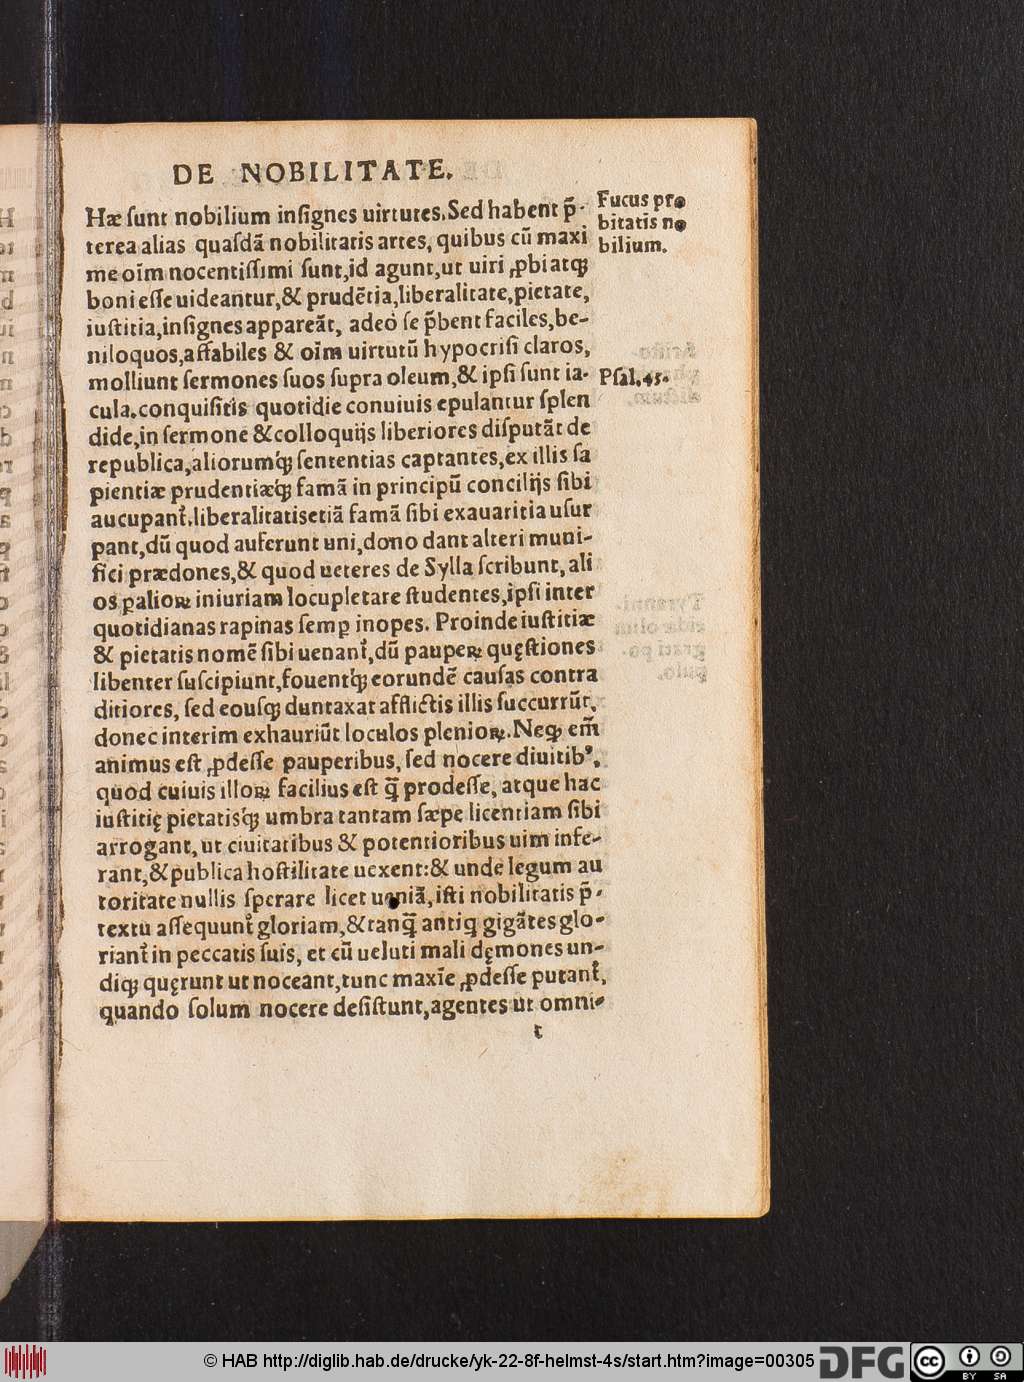 DE NOBILITATE.
Hæ ſunt nobilium inſignes uirtutes. Sed habent p̃-
terea alias quaſdã nobilitatis artes, quibus cũ maxi
me oĩm nocentiſſimi ſunt, id agunt, ut uiri ꝓbi atq;
boni eſſe uideantur, & prudẽtia, liberalitate, pietate,
iuſtitia, inſignes appareãt, adeo ſe p̃bent faciles, be-
niloquos, affabiles & oĩm uirtutũ hypocriſi claros,
molliunt ſermones ſuos ſupra oleum, & ipſi ſunt ia-
cula. conquiſitis quotidie conuiuis epulantur ſplen
dide, in ſermone & colloquijs liberiores diſputãt de
republica, aliorumq́; ſententias captantes, ex illis ſa
pientiæ prudentiæq́; famã in principũ concilijs ſibi
aucupant᷑. liberalitatis etiã famã ſibi ex auaritia uſur
pant, dũ quod auferunt uni, dono dant alteri muni-
fici prædones, & quod ueteres de Sylla ſcribunt, ali
os ꝑ alioꝝ iniuriam locupletare ſtudentes, ipſi inter
quotidianas rapinas ſemꝑ inopes. Proinde iuſtitiæ
& pietatis nomẽ ſibi uenant᷑, dũ pauperꝝ quęſtiones
libenter ſuſcipiunt, fouentq́; eorundẽ cauſas contra
ditiores, ſed eouſq; duntaxat afflictis illis ſuccurrũt,
donec interim exhauriũt loculos plenioꝝ. Neq; em̃
animus eſt ꝓdeſſe pauperibus, ſed nocere diuitibꝰ,
quod cuiuis illoꝝ facilius eſt q̃ prodeſſe, atque hac
iuſtitię pietatisq́; umbra tantam ſæpe licentiam ſibi
arrogant, ut ciuitatibus & potentioribus uim infe-
rant, & publica hoſtilitate uexent: & unde legum au
toritate nullis ſperare licet ueniã, iſti nobilitatis p̃-
textu aſſequunt᷑ gloriam, & tanq̃ antiq gigãtes glo-
riant᷑ in peccatis ſuis, et cũ ueluti mali dęmones un-
diq; quęrunt ut noceant, tunc maxĩe ꝓdeſſe putant᷑,
quando ſolum nocere deſiſtunt, agentes ut omni-
t
Fucus pro
bitatis no
bilium.
Pſal. 45.
© HAB http://diglib.hab.de/drucke/yk-22-8f-helmst-4s/start.htm?image=00305
DFG
cc
BY SA